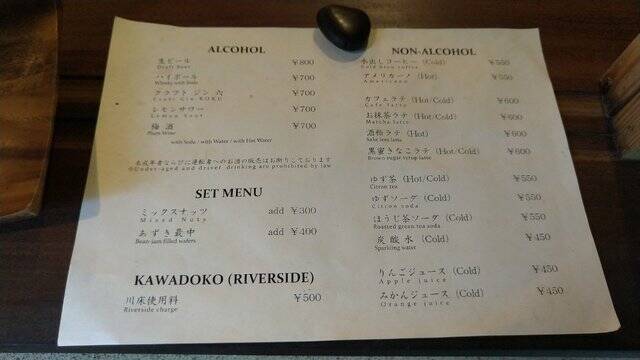 ALCOHOL
生ビール ¥800
Draft Beer
ハイボール ¥700
Whisky with Soda
クラフト ジン 六 ¥700
Craft Gin ROKU
レモンサワー ¥700
Lemon Sour
梅酒 ¥700
Plum Wine
with Soda / with Water / with Hot Water
未成年者ならびに運転者へのお酒の販売はお断りしております
※Under-aged and driver drinking are prohibited by law
SET MENU
ミックスナッツ add ¥300
Mixed Nuts
あずき最中 add ¥400
Bean-jam filled wafers
KAWADOKO (RIVERSIDE)
川床使用料 ¥500
Riverside charge
NON-ALCOHOL
水出しコーヒー (Cold) ¥550
Cold brew coffee
アメリカーノ (Hot) ¥550
Americano
カフェラテ (Hot/Cold) ¥600
Cafe latte
お抹茶ラテ (Hot/Cold) ¥600
Matcha latte
酒粕ラテ (Hot) ¥600
Sake lees latte
黒蜜きなこラテ (Hot/Cold) ¥600
Brown sugar syrup latte
ゆず茶 (Hot/Cold) ¥550
Citron tea
ゆずソーダ (Cold) ¥550
Citron soda
ほうじ茶ソーダ (Cold) ¥550
Roasted green tea soda
炭酸水 (Cold) ¥450
Sparkling water
りんごジュース (Cold) ¥450
Apple juice
みかんジュース (Cold) ¥450
Orange juice